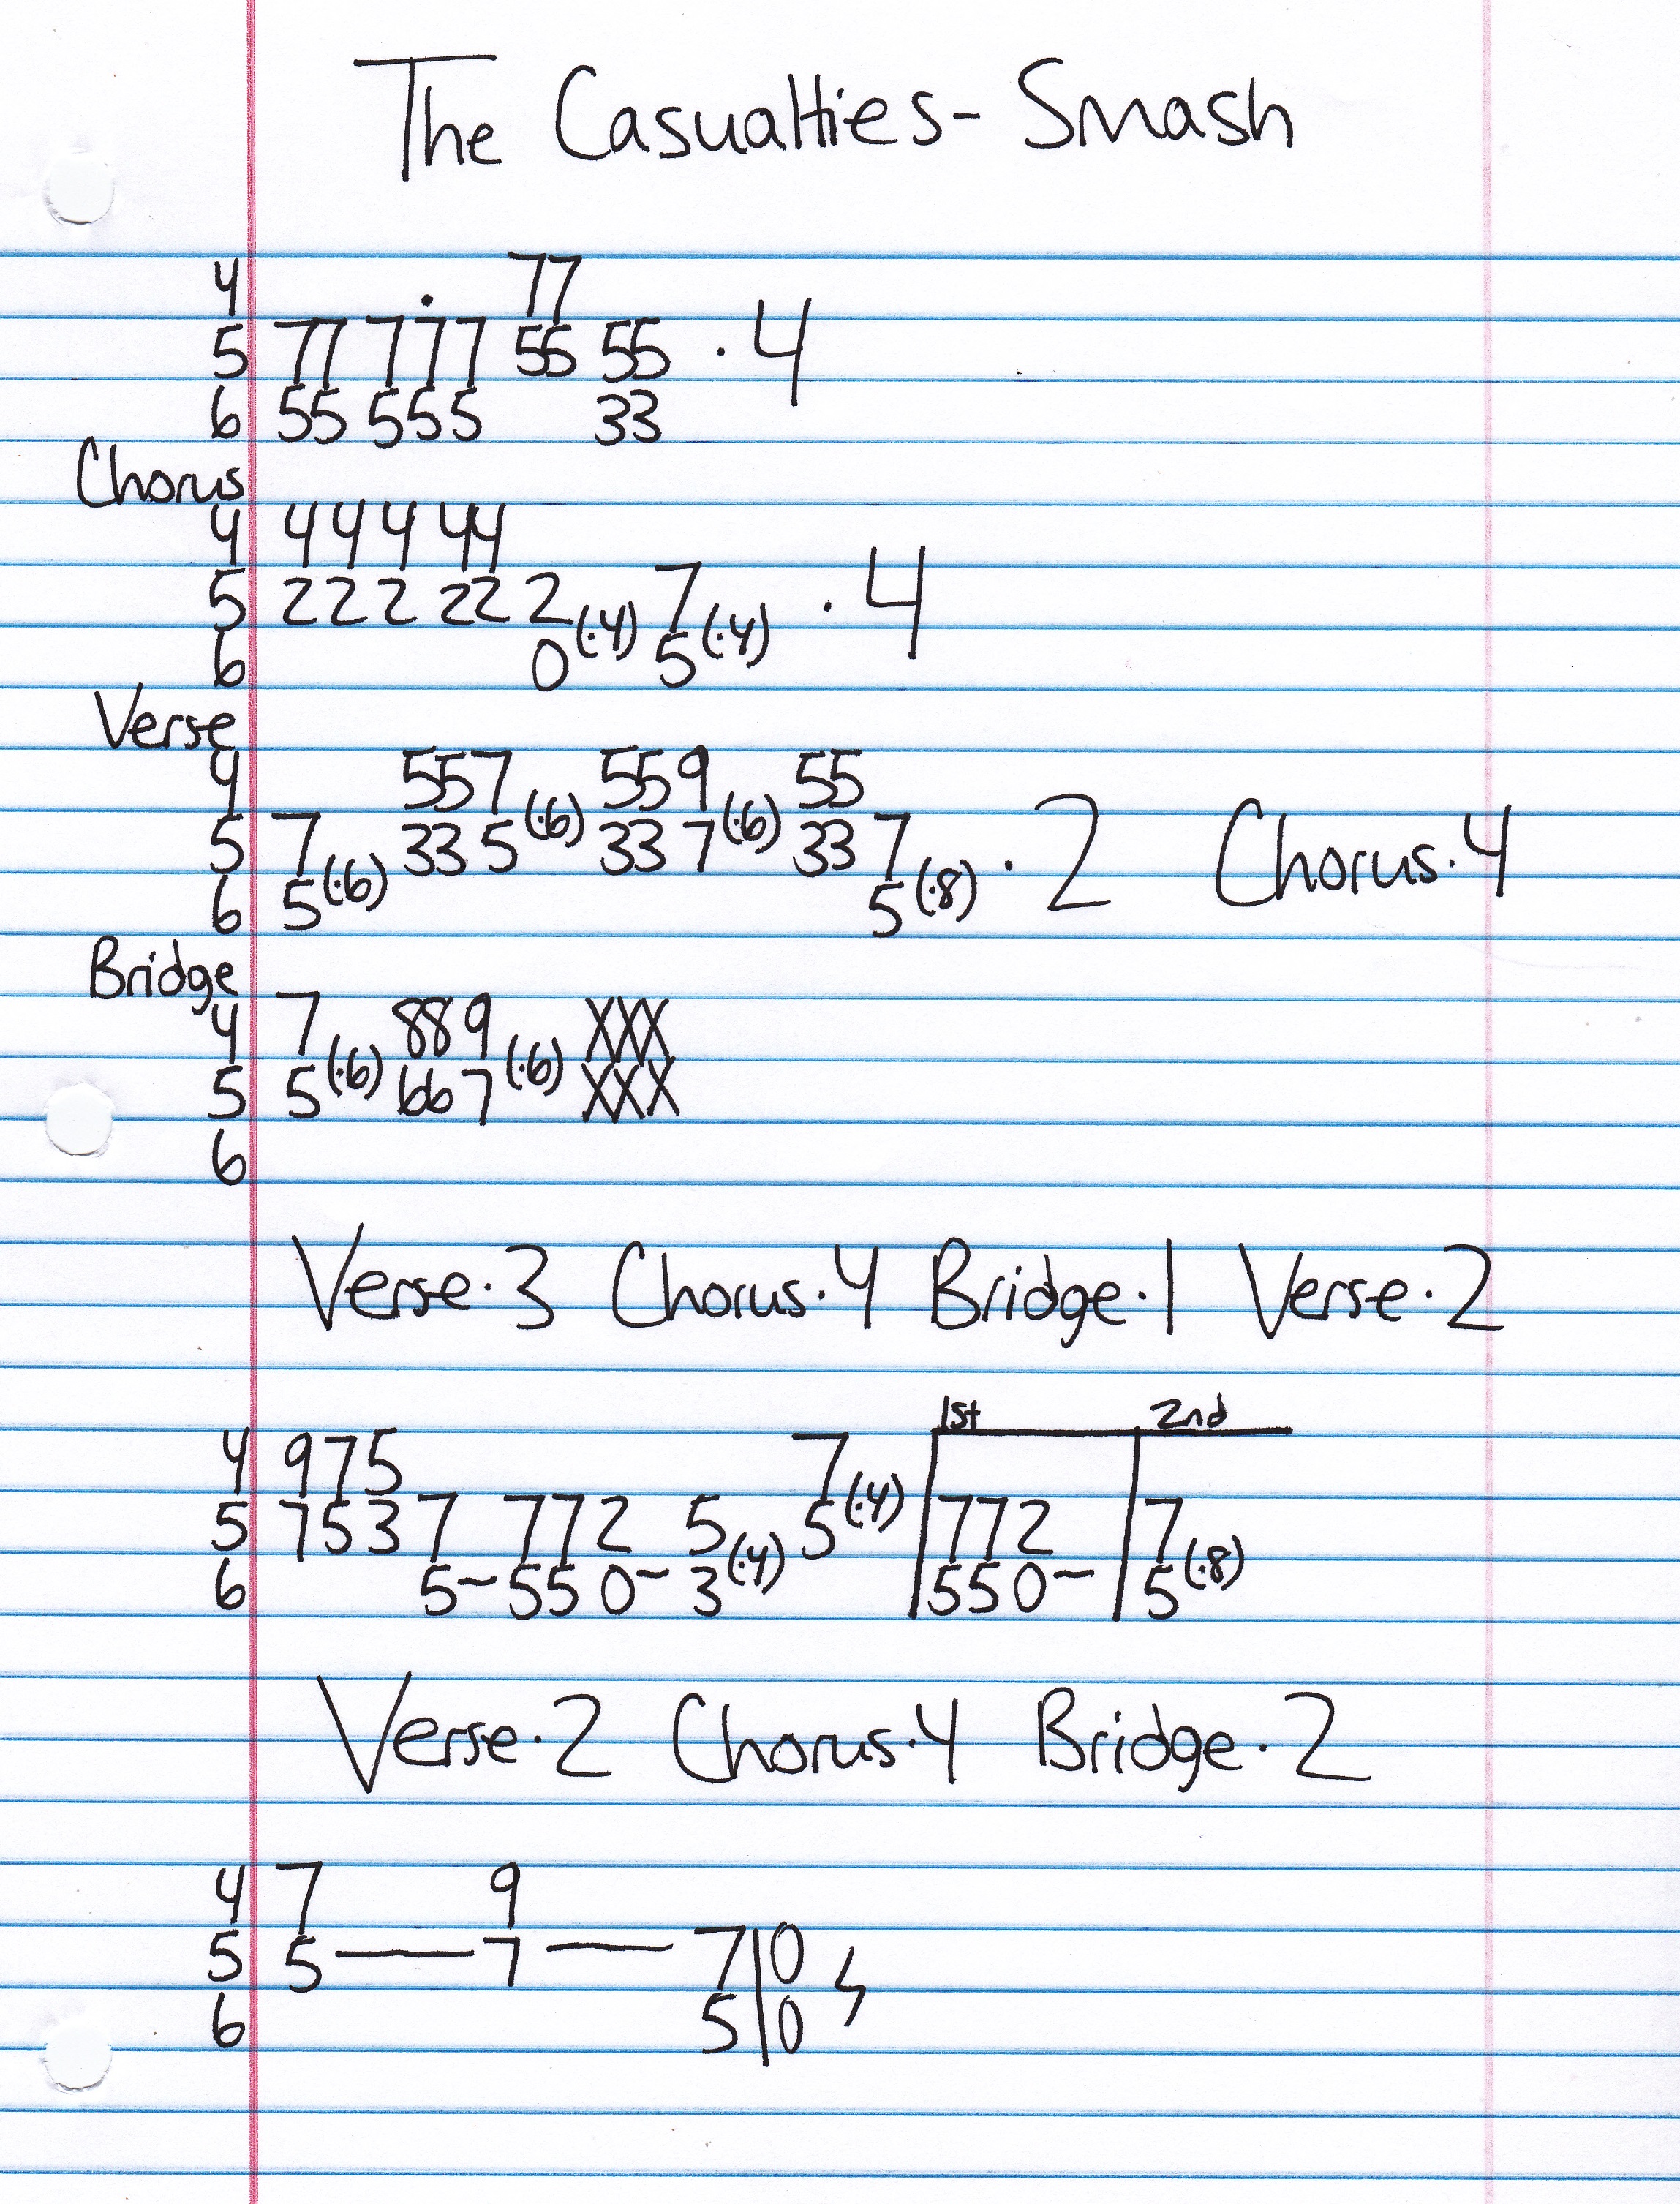 The Casualties- Smash
4 77
5 77 777 55 55 · 4
6 55 555 33
Chorus
4 444 44
5 222 22 2 7 · 4
6 0(·4) 5(·4)
Verse
4 557 559 55
5 7 33 5(·6) 33 7(·6) 33 7 · 2 Chorus·4
6 5(·6) 5(·8)
Bridge
4 7 889 XXX
5 5(·6) 667(·6) XXX
6
Verse·3 Chorus·4 Bridge·1 Verse·2
1st 2nd
4 975 7
5 753 7 772 5 5(·4) 772 7
6 5~55 0~ 3(·4) 550~ 5(·8)
Verse·2 Chorus·4 Bridge·2
4 7 9
5 5—7—7|0
6 5|0